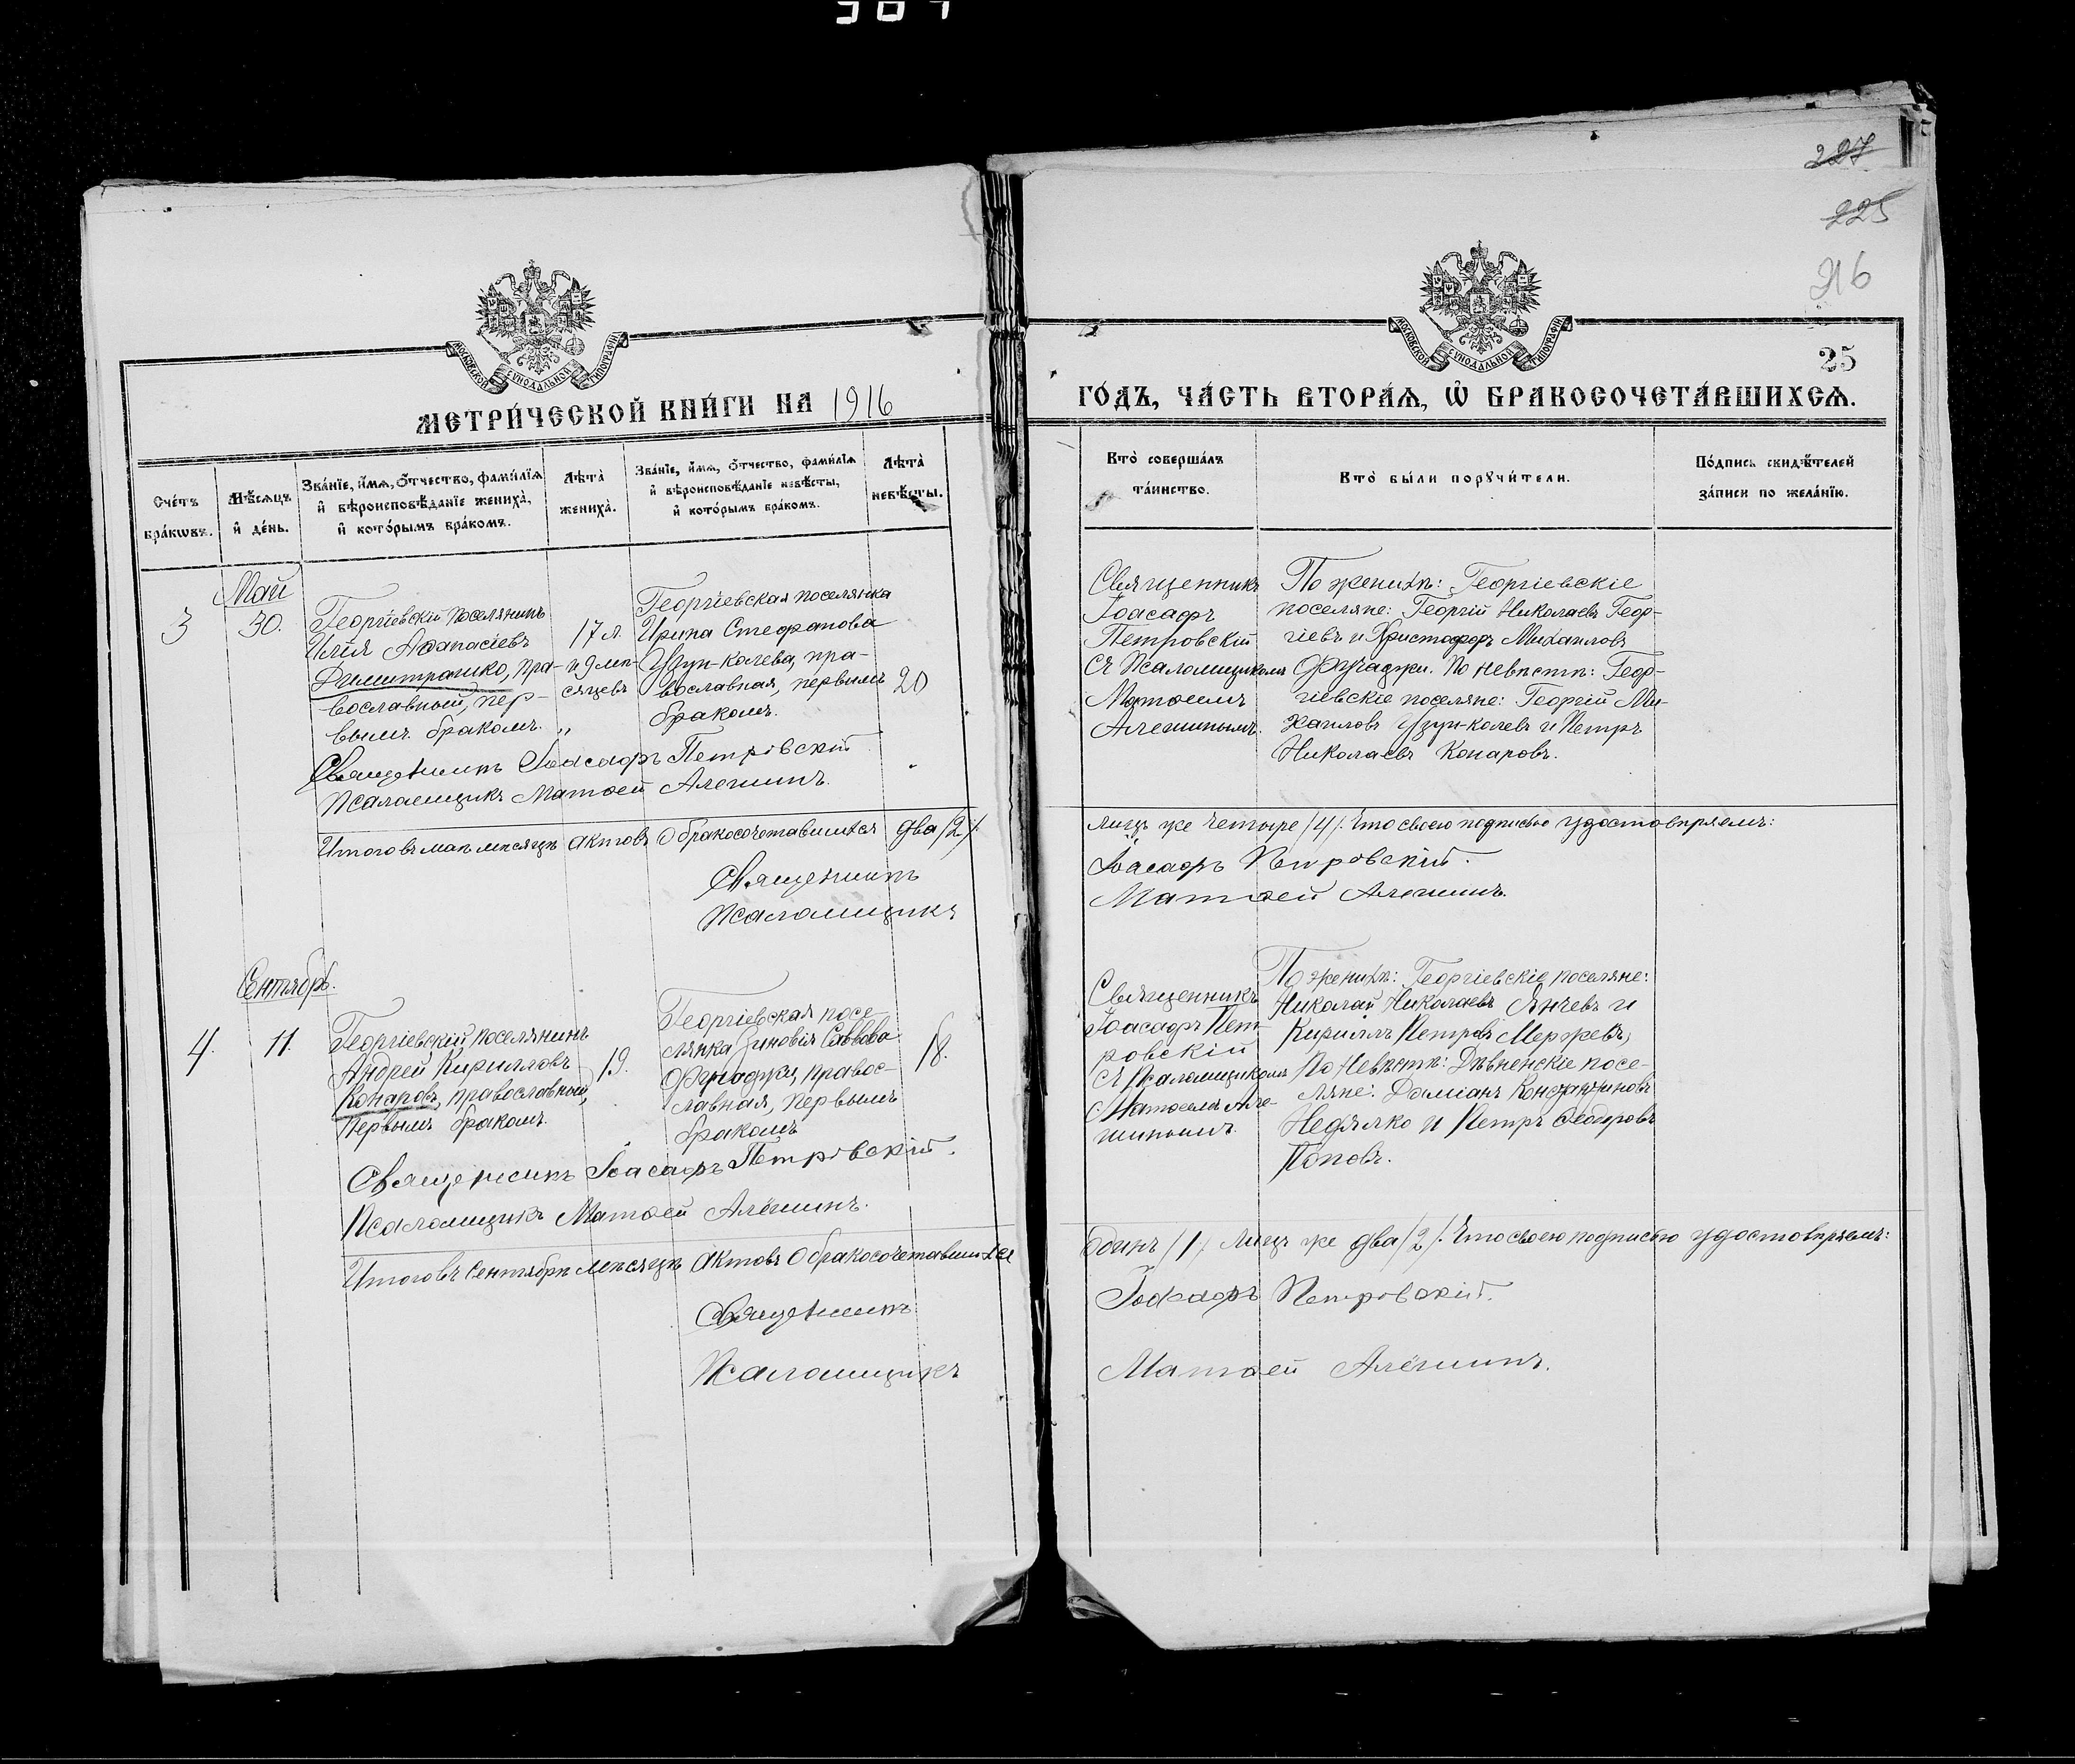 304
227
225
216
25
МОСКОВСКОЙ СѴНОДАЛЬНОЙ ТИПОГРАФІИ
МЕТРИ́ЧЕСКОЙ КНИ́ГИ НА 1916
Сче́тъ бра́кѡвъ.
Мѣ́сѧцъ и҆ де́нь.
Зва́нїе, и҆́мѧ, ѻ҆́тчество, фами́лїѧ
и҆ вѣроисповѣ́данїе жениха̀,
и҆ кото́рымъ бра́комъ.
Лѣ́та жениха̀.
Зва́нїе, и҆́мѧ, ѻ҆́тчество, фами́лїѧ
и҆ вѣроисповѣ́данїе невѣ́сты,
и҆ кото́рымъ бра́комъ.
Лѣ́та невѣ́сты.
3
Май
30.
Георгіевскій поселянинъ
Илія Аѳанасіевъ
Димитрашко, пра-
вославный, пер-
вымъ бракомъ.
17 л.
и 9 мѣ-
сяцевъ
„
Георгіевская поселянка
Ирина Стефанова
Узун-колева, пра-
вославная, первымъ
бракомъ.
20
Священникъ Іоасафъ Петровскій
Псаломщикъ Матѳей Алешинъ.
Итого въ маѣ мѣсяцѣ актовъ о бракосочетавшихся два /2/.
Священникъ
Псаломщикъ
Сентябрь.
4.
11.
Георгіевскій поселянинъ
Андрей Кирилловъ
Конаровъ, православный,
первымъ бракомъ.
19.
Георгіевская посе-
лянка Зиновія Саввова
Фучаджи, правос-
лавная, первымъ
бракомъ
18.
Священникъ Іоасафъ Петровскій.
Псаломщикъ Матѳей Алёшинъ.
Итого въ Сентябрѣ мѣсяцѣ актовъ о бракосочетавшихся
Священникъ
Псаломщикъ
МОСКОВСКОЙ СѴНОДАЛЬНОЙ ТИПОГРАФІИ
ГО́ДЪ, ЧА́СТЬ ВТОРА́Ѧ, Ѡ҆ БРАКОСОЧЕТА́ВШИХСѦ.
Кто̀ соверша́лъ
та́инство.
Кто̀ бы́ли порꙋчи́тели.
По́дпись свидѣ́телей
за́писи по жела́нїю.
Священникъ
Іоасафъ
Петровскій
съ Псаломщикомъ
Матѳеемъ
Алешинымъ.
По женихѣ: Георгіевскіе
поселяне: Георгій Николаевъ Геор-
гіевъ и Христофоръ Михаиловъ
Фучаджи. По невѣстѣ: Геор-
гіевскіе поселяне: Георгій Ми-
хаиловъ Узун-колевъ и Петръ
Николаевъ Конаровъ.
лицъ же четыре /4/. Что своею подписью удостовѣряемъ:
Іоасафъ Петровскій.
Матѳей Алешинъ.
Священникъ
Іоасафъ Пет-
ровскій
съ Псаломщикомъ
Матѳеемъ Але-
шинымъ.
По женихѣ: Георгіевскіе поселяне:
Николай Николаевъ Янчевъ и
Кириллъ Петровъ Мержевъ,
По невѣстѣ: Дѣвненскіе посе-
ляне: Даміанъ Константиновъ
Недялко и Петръ Ѳедоровъ
Поповъ.
Одинъ /1/. Лицъ же два /2/. Что своею подписью удостовѣряемъ:
Іоасафъ Петровскій.
Матѳей Алёшинъ.